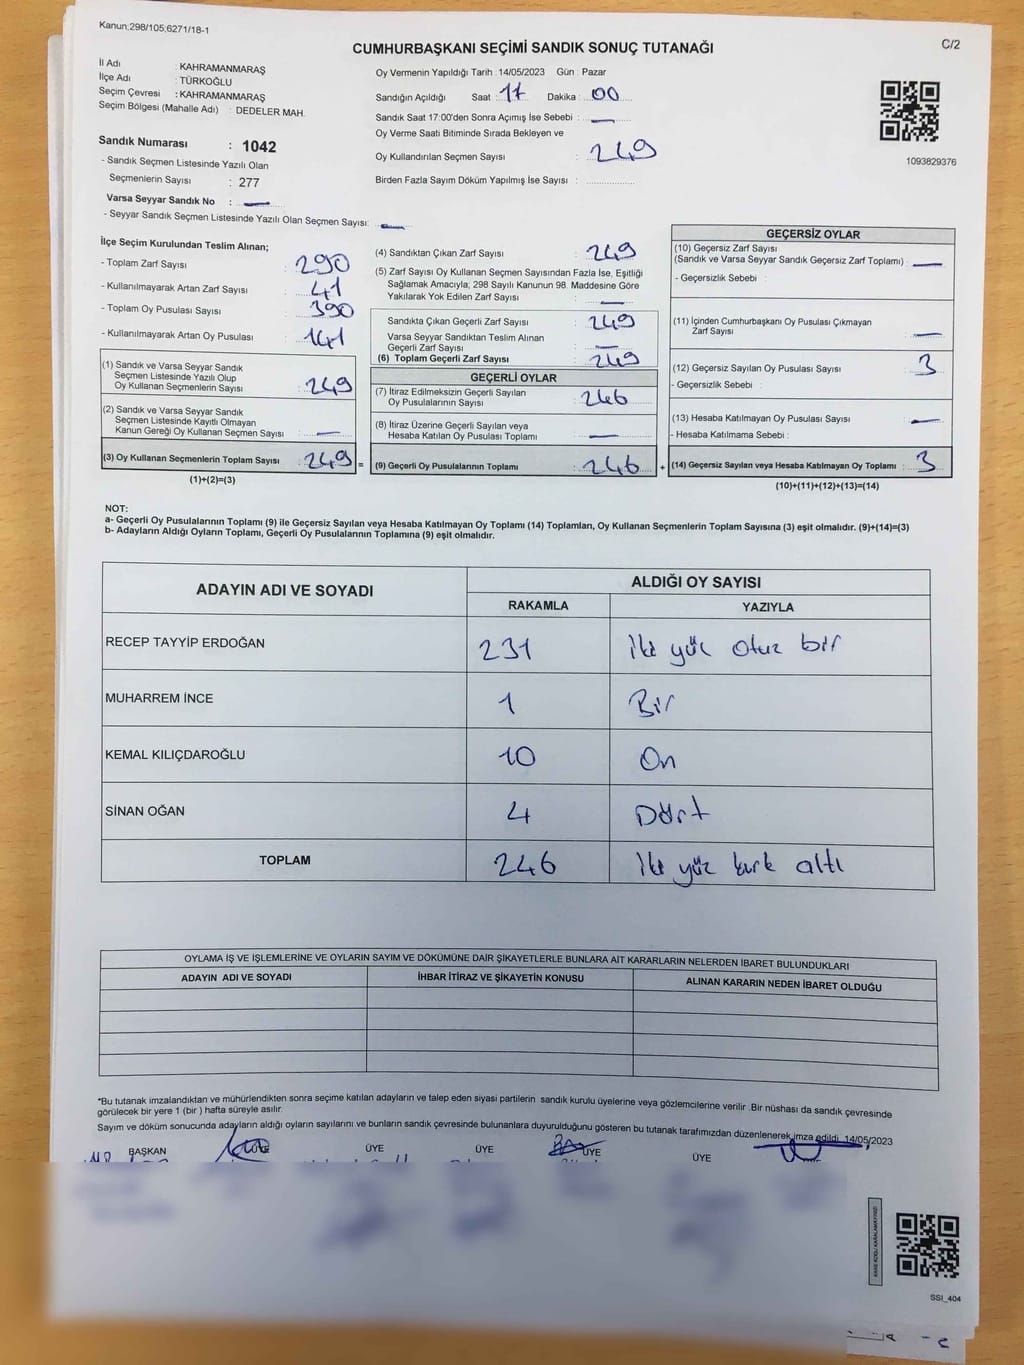 Kanun;298/105;6271/18-1
C/2
CUMHURBAŞKANI SEÇİMİ SANDIK SONUÇ TUTANAĞI
İl Adı : KAHRAMANMARAŞ
İlçe Adı : TÜRKOĞLU
Seçim Çevresi : KAHRAMANMARAŞ
Seçim Bölgesi (Mahalle Adı) : DEDELER MAH.
Sandık Numarası : 1042
- Sandık Seçmen Listesinde Yazılı Olan
Seçmenlerin Sayısı : 277
Varsa Seyyar Sandık No :
- Seyyar Sandık Seçmen Listesinde Yazılı Olan Seçmen Sayısı:
Oy Vermenin Yapıldığı Tarih : 14/05/2023 Gün : Pazar
Sandığın Açıldığı Saat : 17 Dakika : 00
Sandık Saat 17:00'den Sonra Açımış İse Sebebi :
Oy Verme Saati Bitiminde Sırada Bekleyen ve
Oy Kullandırılan Seçmen Sayısı : 249
Birden Fazla Sayım Döküm Yapılmış İse Sayısı :
1093829376
İlçe Seçim Kurulundan Teslim Alınan;
- Toplam Zarf Sayısı : 290
- Kullanılmayarak Artan Zarf Sayısı : 41
- Toplam Oy Pusulası Sayısı : 390
- Kullanılmayarak Artan Oy Pusulası : 141
(1) Sandık ve Varsa Seyyar Sandık
Seçmen Listesinde Yazılı Olup
Oy Kullanan Seçmenlerin Sayısı : 249
(2) Sandık ve Varsa Seyyar Sandık
Seçmen Listesinde Kayıtlı Olmayan
Kanun Gereği Oy Kullanan Seçmen Sayısı :
(3) Oy Kullanan Seçmenlerin Toplam Sayısı : 249
(1)+(2)=(3)
(4) Sandıktan Çıkan Zarf Sayısı : 249
(5) Zarf Sayısı Oy Kullanan Seçmen Sayısından Fazla İse, Eşitliği
Sağlamak Amacıyla; 298 Sayılı Kanunun 98. Maddesine Göre
Yakılarak Yok Edilen Zarf Sayısı :
Sandıkta Çıkan Geçerli Zarf Sayısı : 249
Varsa Seyyar Sandıktan Teslim Alınan
Geçerli Zarf Sayısı :
(6) Toplam Geçerli Zarf Sayısı : 249
GEÇERLİ OYLAR
(7) İtiraz Edilmeksizin Geçerli Sayılan
Oy Pusulalarının Sayısı : 246
(8) İtiraz Üzerine Geçerli Sayılan veya
Hesaba Katılan Oy Pusulası Toplamı :
= (9) Geçerli Oy Pusulalarının Toplamı : 246
GEÇERSİZ OYLAR
(10) Geçersiz Zarf Sayısı
(Sandık ve Varsa Seyyar Sandık Geçersiz Zarf Toplamı) :
- Geçersizlik Sebebi :
(11) İçinden Cumhurbaşkanı Oy Pusulası Çıkmayan
Zarf Sayısı :
(12) Geçersiz Sayılan Oy Pusulası Sayısı : 3
- Geçersizlik Sebebi :
(13) Hesaba Katılmayan Oy Pusulası Sayısı :
- Hesaba Katılmama Sebebi :
+ (14) Geçersiz Sayılan veya Hesaba Katılmayan Oy Toplamı : 3
(10)+(11)+(12)+(13)=(14)
NOT:
a- Geçerli Oy Pusulalarının Toplamı (9) ile Geçersiz Sayılan veya Hesaba Katılmayan Oy Toplamı (14) Toplamları, Oy Kullanan Seçmenlerin Toplam Sayısına (3) eşit olmalıdır. (9)+(14)=(3)
b- Adayların Aldığı Oyların Toplamı, Geçerli Oy Pusulalarının Toplamına (9) eşit olmalıdır.
ADAYIN ADI VE SOYADI ALDIĞI OY SAYISI
RAKAMLA YAZIYLA
RECEP TAYYİP ERDOĞAN 231 iki yüz otuz bir
MUHARREM İNCE 1 Bir
KEMAL KILIÇDAROĞLU 10 On
SİNAN OĞAN 4 Dört
TOPLAM 246 iki yüz kırk altı
OYLAMA İŞ VE İŞLEMLERİNE VE OYLARIN SAYIM VE DÖKÜMÜNE DAİR ŞİKAYETLERLE BUNLARA AİT KARARLARIN NELERDEN İBARET BULUNDUKLARI
ADAYIN ADI VE SOYADI İHBAR İTİRAZ VE ŞİKAYETİN KONUSU ALINAN KARARIN NEDEN İBARET OLDUĞU
*Bu tutanak imzalandıktan ve mühürlendikten sonra seçime katılan adayların ve talep eden siyasi partilerin sandık kurulu üyelerine veya gözlemcilerine verilir .Bir nüshası da sandık çevresinde
görülecek bir yere 1 (bir ) hafta süreyle asılır.
Sayım ve döküm sonucunda adayların aldığı oyların sayılarını ve bunların sandık çevresinde bulunanlara duyurulduğunu gösteren bu tutanak tarafımızdan düzenlenerek imza edildi. 14/05/2023
BAŞKAN ÜYE ÜYE ÜYE ÜYE ÜYE
KARE KODU KARALAMAYINIZ!
SSI_404